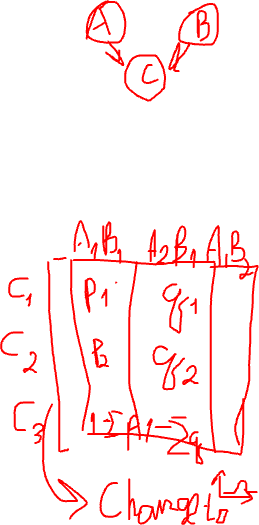 A B
C
A₁B₁ A₂B₁ A₁B₂
C₁ P₁ q₁
C₂ P₂ q₂
C₃ 1-Σp 1-Σq
Change to